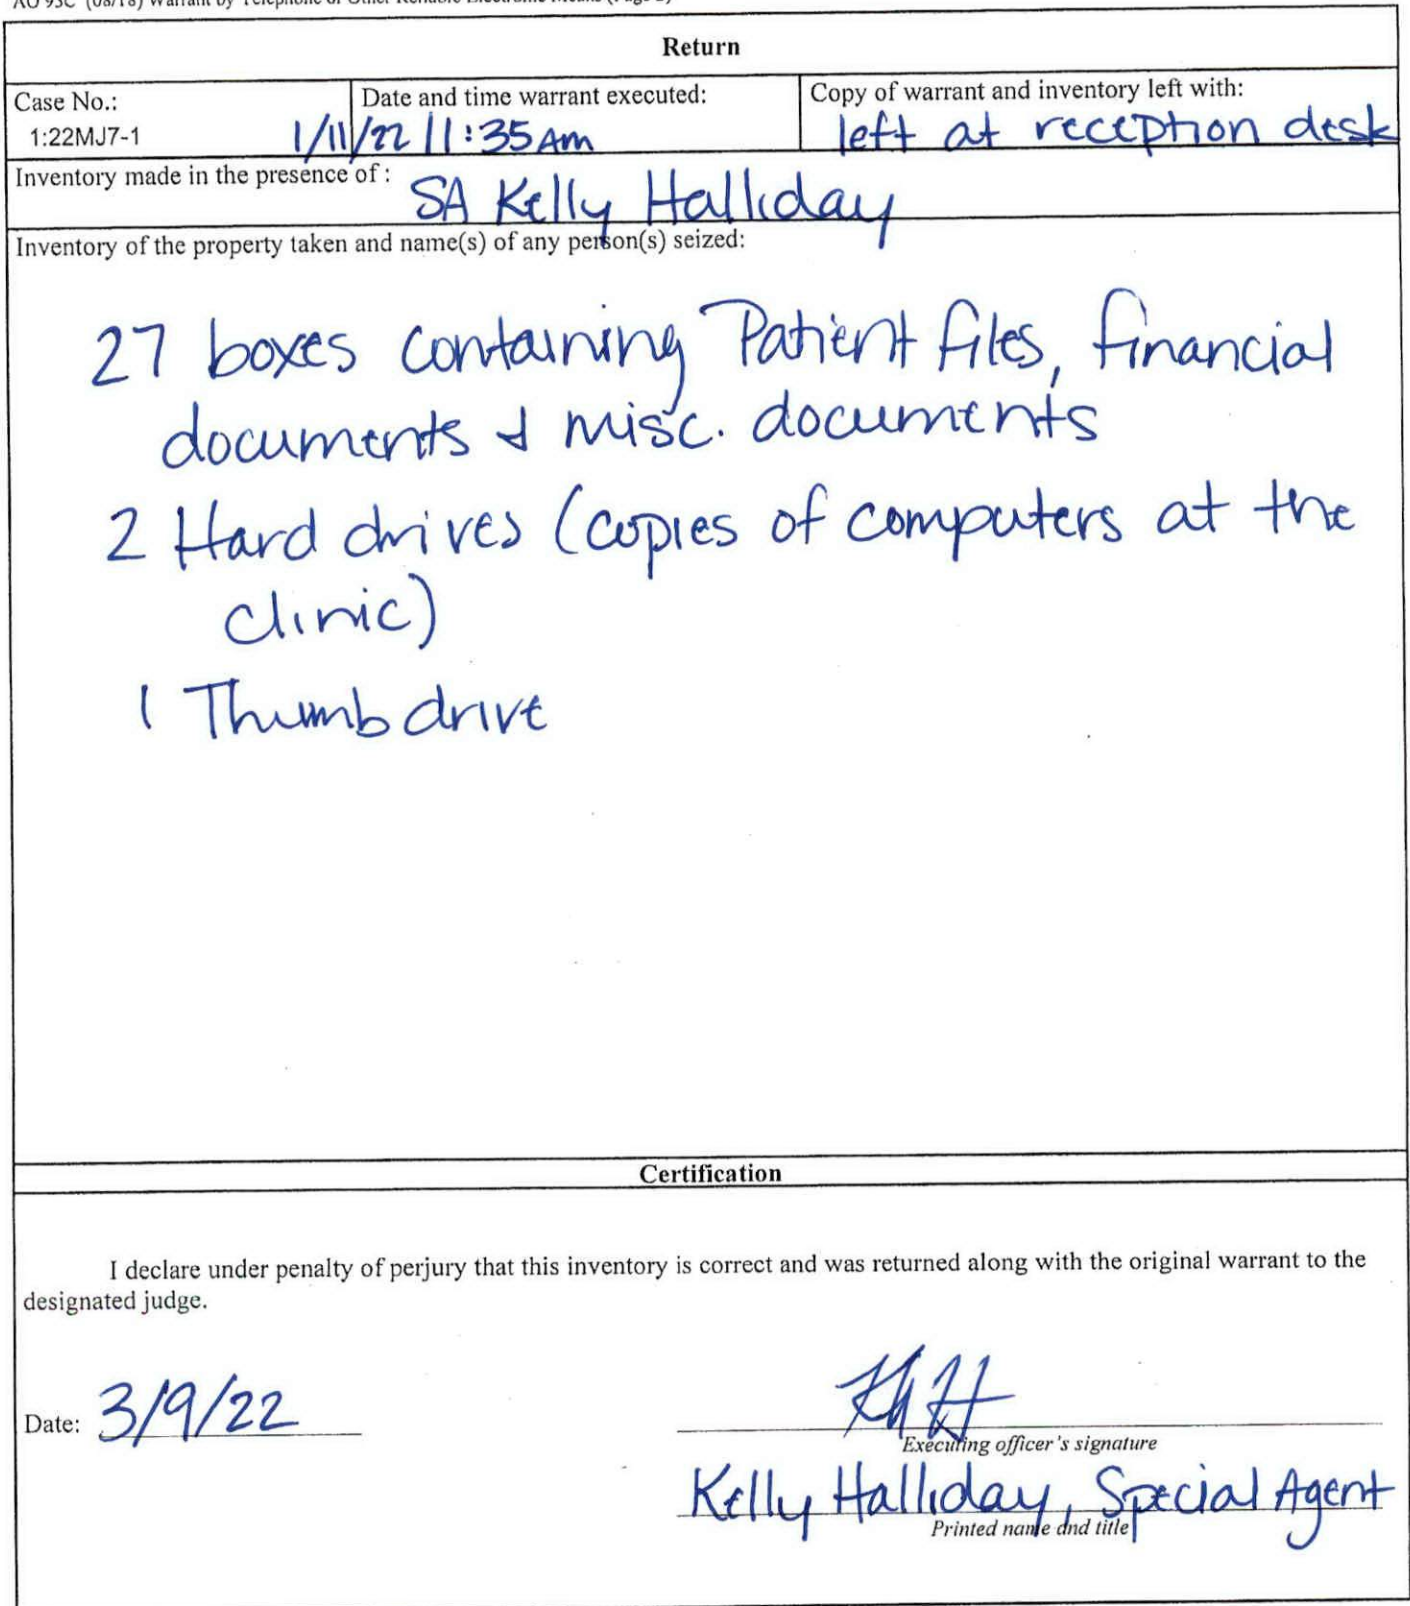 AO 93C (08/18) Warrant by Telephone or Other Reliable Electronic Means (Page 2)
Return
Case No.:
1:22MJ7-1
Date and time warrant executed:
1/11/22 11:35 Am
Copy of warrant and inventory left with:
left at reception desk
Inventory made in the presence of :
SA Kelly Halliday
Inventory of the property taken and name(s) of any person(s) seized:
27 boxes containing Patient files, financial
documents & misc. documents
2 Hard drives (copies of computers at the
clinic)
1 Thumb drive
Certification
I declare under penalty of perjury that this inventory is correct and was returned along with the original warrant to the
designated judge.
Date: 3/9/22
Executing officer's signature
Kelly Halliday, Special Agent
Printed name and title